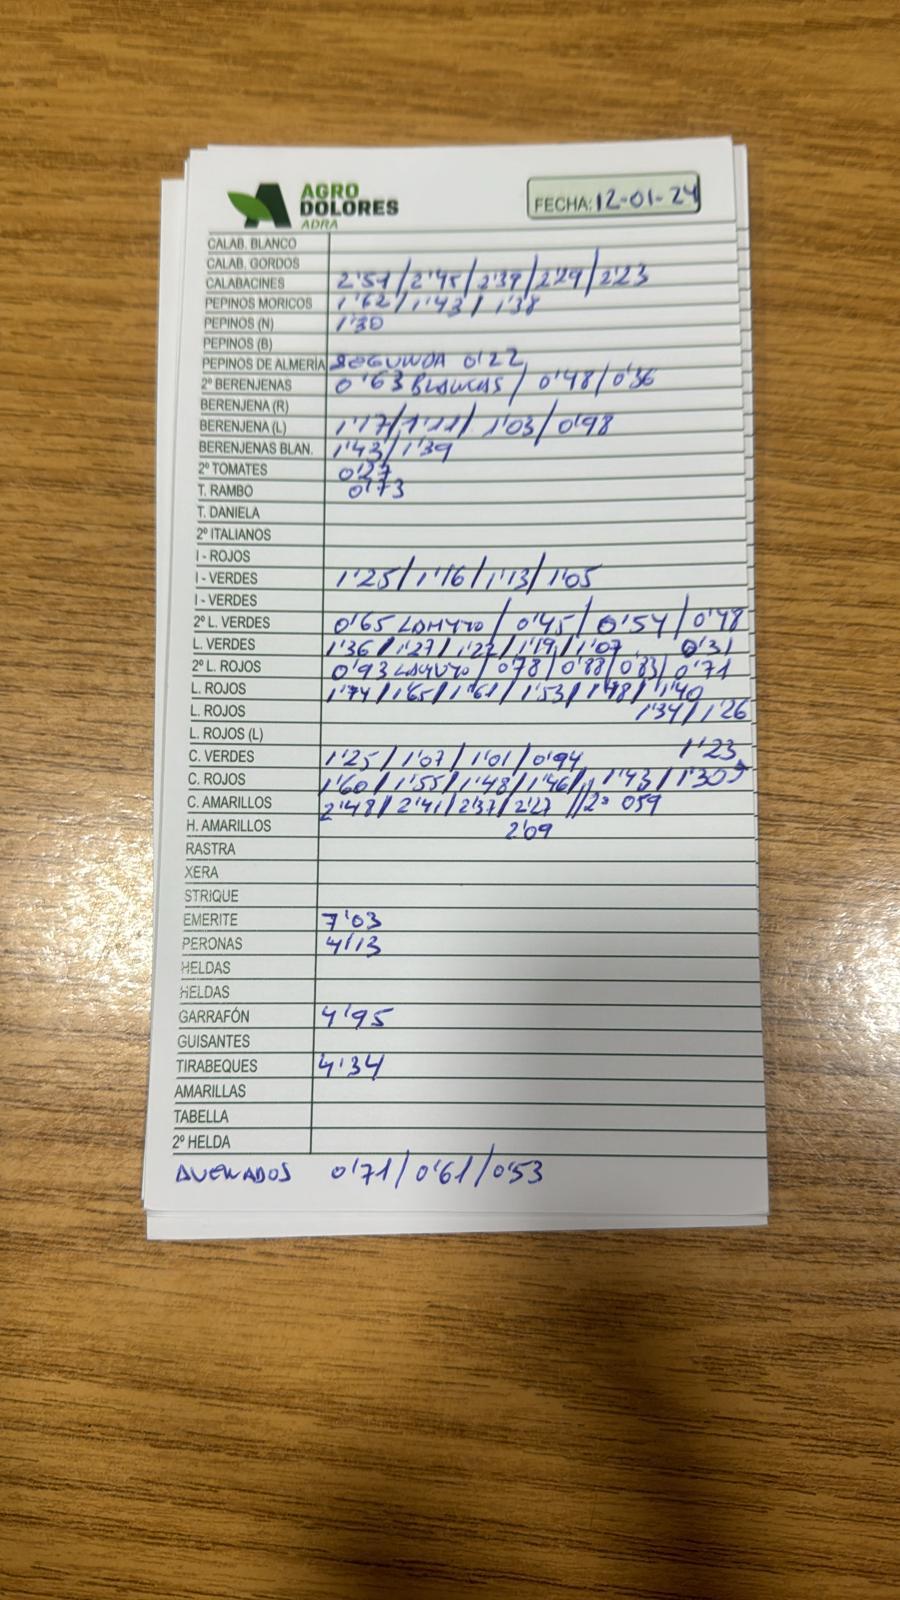 AGRO
DOLORES
ADRA
FECHA: 12-01-24
CALAB. BLANCO
CALAB. GORDOS
CALABACINES 2'51 / 2'45 / 2'39 / 2'29 / 2'23
PEPINOS MORICOS 1'62 / 1'43 / 1'38
PEPINOS (N) 1'30
PEPINOS (B)
PEPINOS DE ALMERÍA SEGUNDA 0'22
2º BERENJENAS 0'63 BLANCAS / 0'48 / 0'36
BERENJENA (R)
BERENJENA (L) 1'17 / 1'11 / 1'03 / 0'98
BERENJENAS BLAN. 1'43 / 1'39
2º TOMATES 0'27
T. RAMBO 0'73
T. DANIELA
2º ITALIANOS
I - ROJOS
I - VERDES 1'25 / 1'16 / 1'13 / 1'05
I - VERDES
2º L. VERDES 0'65 LAMUYO / 0'45 / 0'54 / 0'48
L. VERDES 1'36 / 1'27 / 1'22 / 1'19 / 1'07 0'31
2º L. ROJOS 0'93 LAMUYO / 0'78 / 0'88 / 0'83 / 0'71
L. ROJOS 1'74 / 1'65 / 1'61 / 1'53 / 1'48 / 1'40
L. ROJOS 1'34 / 1'26
L. ROJOS (L)
C. VERDES 1'25 / 1'07 / 1'01 / 0'94 1'23
C. ROJOS 1'60 / 1'55 / 1'48 / 1'46 / 1'43 / 1'30
C. AMARILLOS 2'48 / 2'41 / 2'37 / 2'27 // 2º 059
H. AMARILLOS 2'09
RASTRA
XERA
STRIQUE
EMERITE 7'03
PERONAS 4'13
HELDAS
HELDAS
GARRAFÓN 4'95
GUISANTES
TIRABEQUES 4'34
AMARILLAS
TABELLA
2º HELDA
0'71 / 0'61 / 0'53